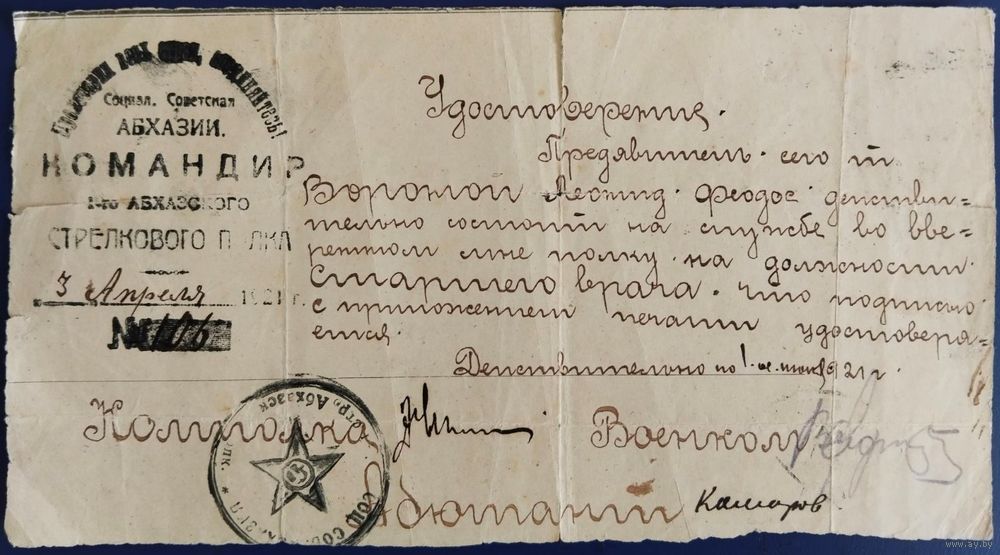 Пролетарии всех стран, соединяйтесь!
Социал. Советская
АБХАЗИИ.
КОМАНДИР
1-го АБХАЗСКОГО
СТРЕЛКОВОГО ПОЛКА
3 Апреля 1921 г.
№ 106
Удостоверение.
Предявитель сего т
Вороной Леонид Феодос действи=
тельно состоит на службе во вве=
ренном мне полку на должности
Старшего врача. что подписью
с приложением печати удостоверя=
ется.
Действительно по 1 1921 г.
Комполка
Военком
Адютант Комаров
стр. Абхазск
www.ay.by